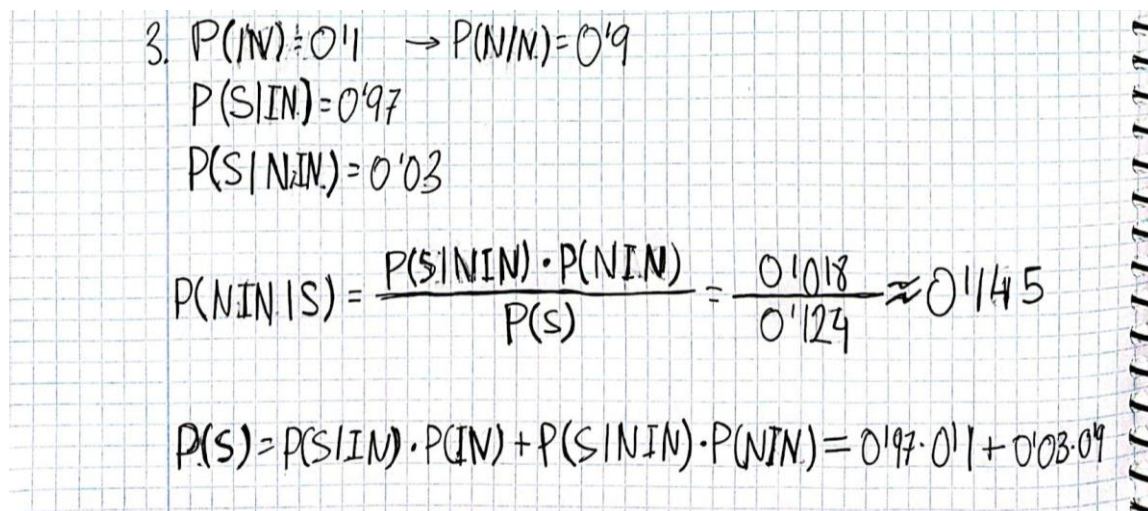 3. P(IN)=0'1 → P(NIN.)=0'9
P(S|IN.)=0'97
P(S|N.IN.)=0'03
P(NIN|S) = P(S|NIN)·P(NI.N) / P(S) = 0'018 / 0'124 ≈ 0'145
P(S)=P(S|IN)·P(IN)+P(S|NIN)·P(NIN.)=0'97·0'1+0'03·0'9